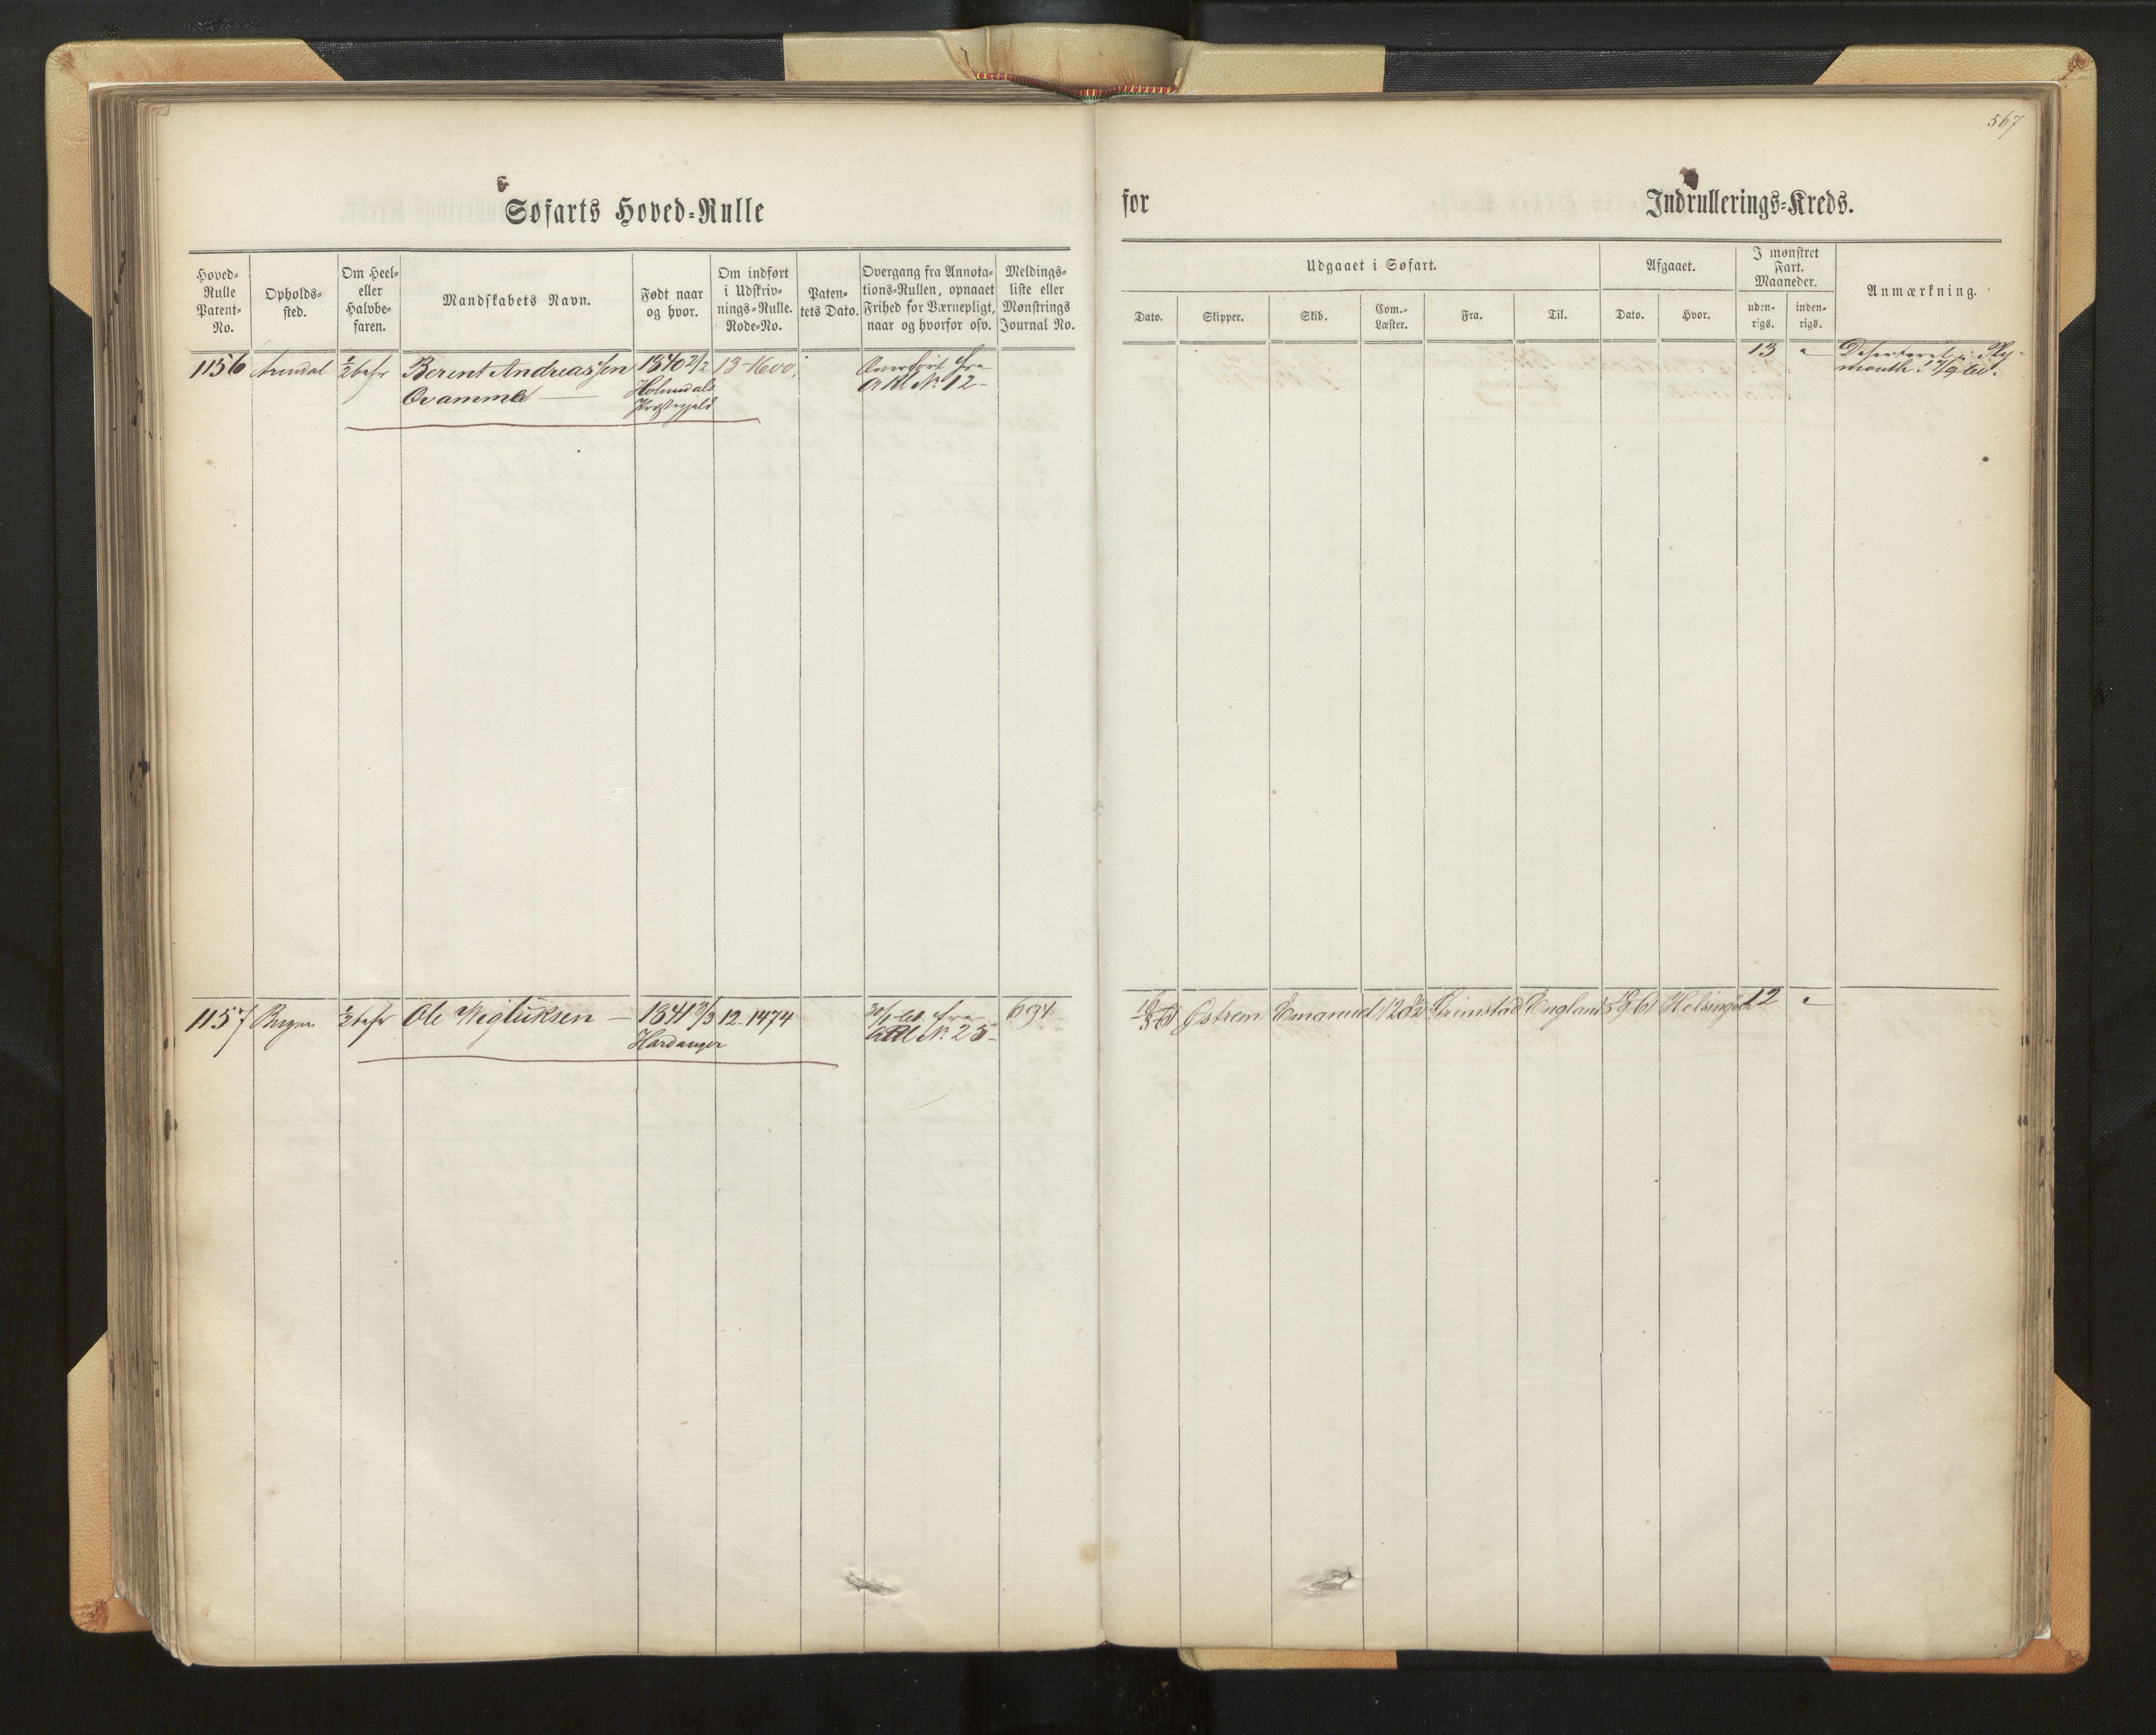 567
Søfarts Hoved-Rulle
for
Indrullerings-Kreds.
Hoved-
Rulle
Patent-
No.
Opholds-
sted.
Om Heel-
eller
Halvbe-
faren.
Mandskabets Navn.
Født naar
og hvor.
Om indført
i Udskriv-
nings-Rulle.
Rode-No.
Paten-
tets Dato.
Overgang fra Annota-
tions-Rullen, opnaaet
Frihed for Værnepligt,
naar og hvorfor osv.
Meldings-
liste eller
Mønstrings
Journal No.
Udgaaet i Søfart.
Dato.
Skipper.
Skib.
Com.-
Læster.
Fra.
Til.
Afgaaet.
Dato.
Hvor.
I mønstret
Fart.
Maaneder.
uden-
rigs.
inden-
rigs.
Anmærkning.
1156 Arendal ½ befr Berent Andreassen 1840 2/2 13-1600 Overført fra 13 " Deserteret i Ply-
Qvamme Holmedals ARl No 12 mouth
Præstegjeld
1157 Bergen ½ befr Ole Wigliksen 1841 3/3 12-1474 fra 694 Østrem Emanuel Grimstad England Helsingør 12 "
Hardanger ARl No 25